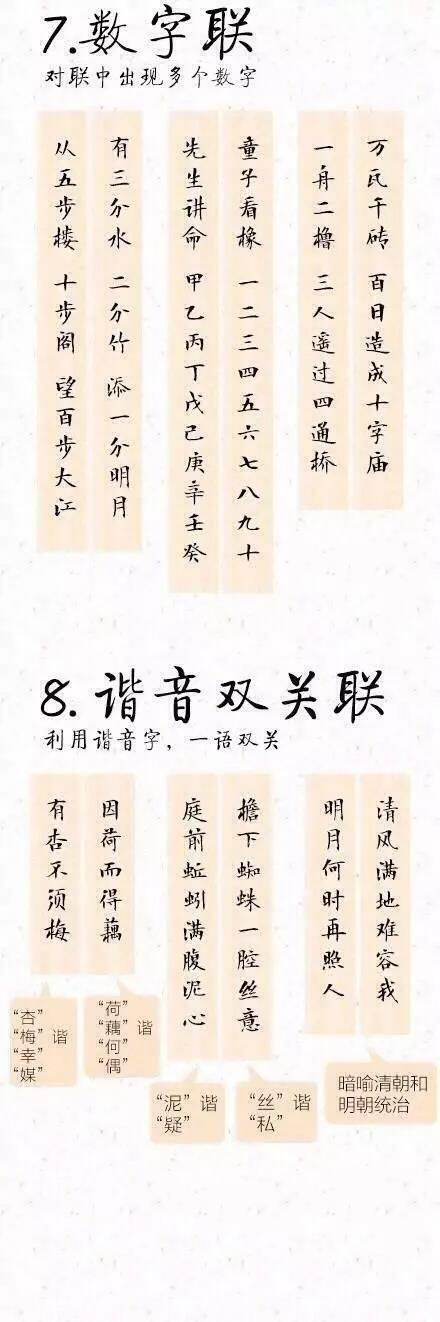 7.数字联
对联中出现多个数字
万瓦千砖 百日造成十字庙
一舟二橹 三人遥过四通桥
童子看椽 一二三四五六七八九十
先生讲命 甲乙丙丁戊己庚辛壬癸
有三分水 二分竹 添一分明月
从五步楼 十步阁 望百步大江
8.谐音双关联
利用谐音字，一语双关
清风满地难容我
明月何时再照人
暗喻清朝和
明朝统治
檐下蜘蛛一腔丝意
“丝”谐
“私”
庭前蚯蚓满腹泥心
“泥”谐
“疑”
因荷而得藕
“荷”
“藕”谐
“何”
“偶”
有杏不须梅
“杏”
“梅”谐
“幸”
“媒”